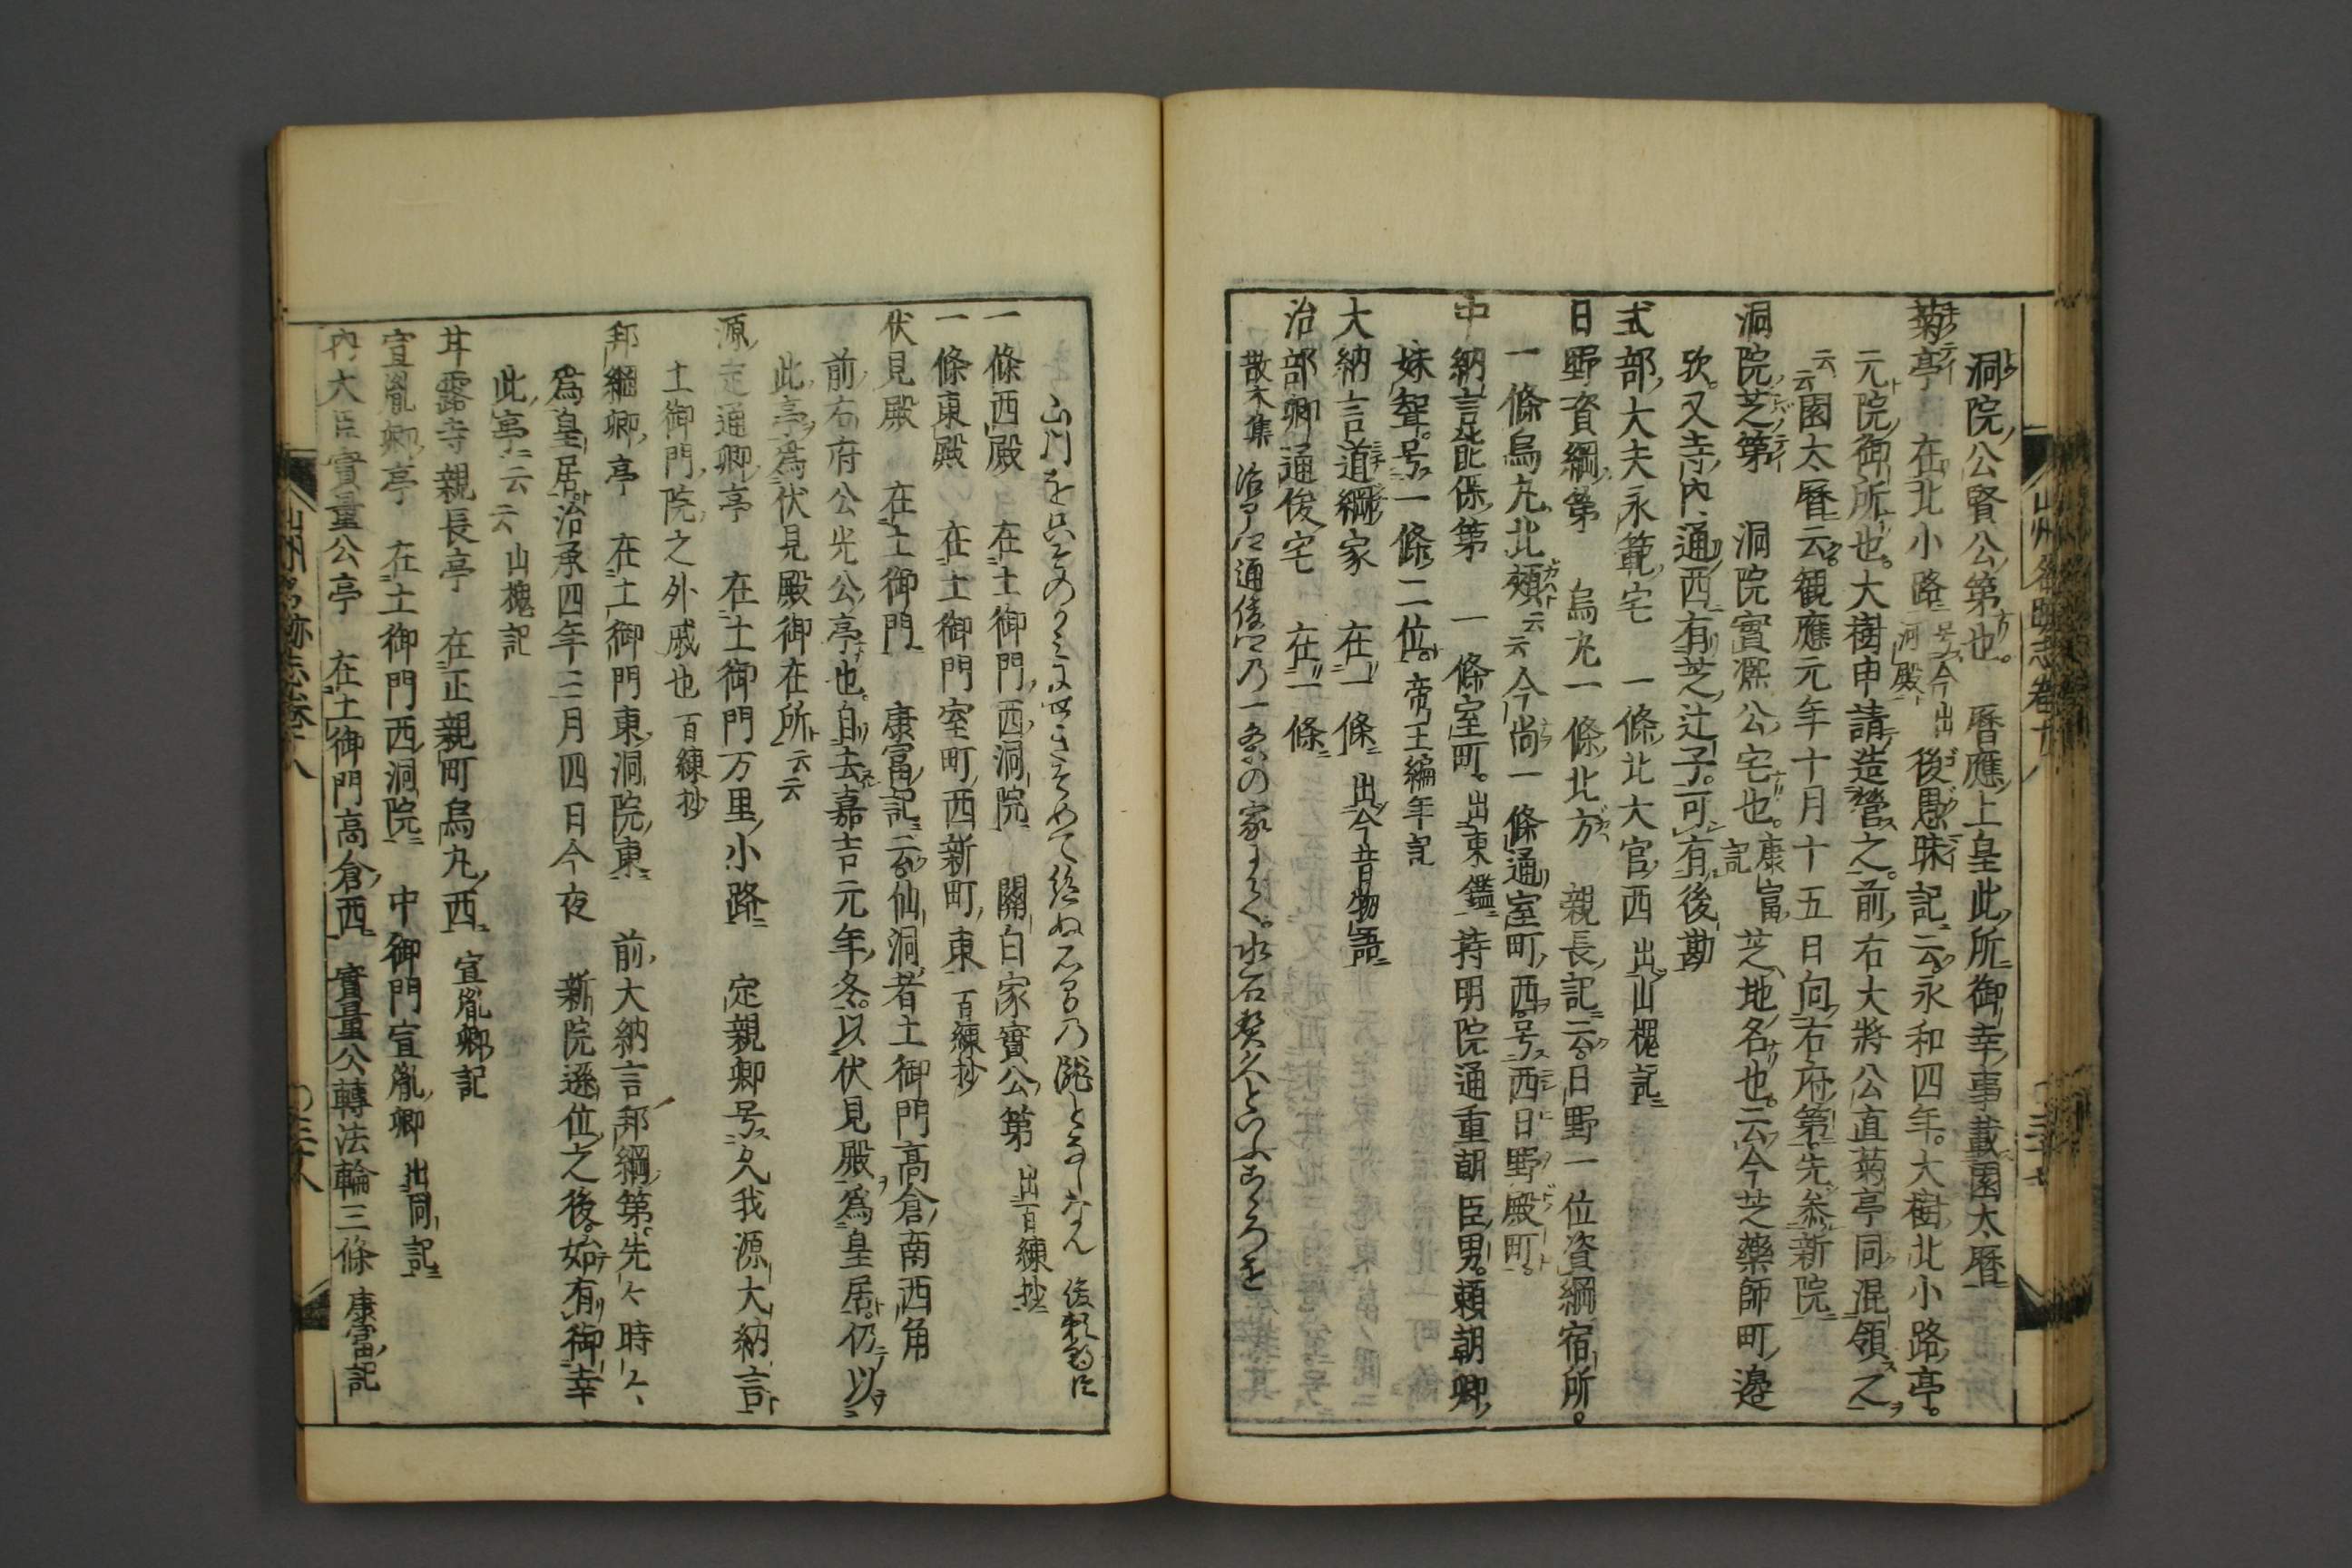 洞院公賢公第也。曆應上皇此所御幸事載園太曆
菊亭 在北小路 号今出河殿 後愚昧記云永和四年。大樹北小路亭。
元院御所也。大樹申請造營之。前右大將公直菊亭同混領之
云云園太曆云。観應元年十月十五日向右府第先参新院
洞院芝第 洞院實凞公宅也。康富記 芝地名也。云今芝藥師町邉
欤。又寺内通西有芝辻子。可有後勘
式部大夫永範宅 一條北大宮西 出山槐記
日野資綱第 烏丸一條北方 親長記云日野一位資綱宿所。
一條烏丸北頬云云今尚一條通室町西号西日野殿町。
中納言能保第 一條室町。出東鑑 持明院通重朝臣男。頼朝卿
妹聟。号一條二位。帝王編年記
大納言道綱家 在一條 出今昔物語
治部卿通俊宅 在二條
散木集 治ア卿通俊卿の一条の家にて。水石契久といふこゝろを
山川を
一條西殿 在土御門西洞院 關白家實公第 出百練抄
一條東殿 在土御門室町西新町東 百練抄
伏見殿 在土御門 康富記云仙洞者土御門高倉南西角
前右府公光公亭也。自去嘉吉元年冬。以伏見殿爲皇居。仍以
此亭爲伏見殿御在所云云
源定通卿亭 在土御門万里小路 定親卿号久我源大納言
土御門院之外戚也 百練抄
邦綱卿亭 在土御門東洞院東 前大納言邦綱第。先々時々
爲皇居。治承四年二月四日今夜 新院遜位之後。始有御幸
此亭云云 山槐記
甘露寺親長亭 在正親町烏丸西 宣胤卿記
宣胤卿亭 在土御門西洞院 中御門宣胤卿 出同記
内大臣實量公亭 在土御門高倉西 實量公轉法輪三條 康富記
山州名跡志巻十八